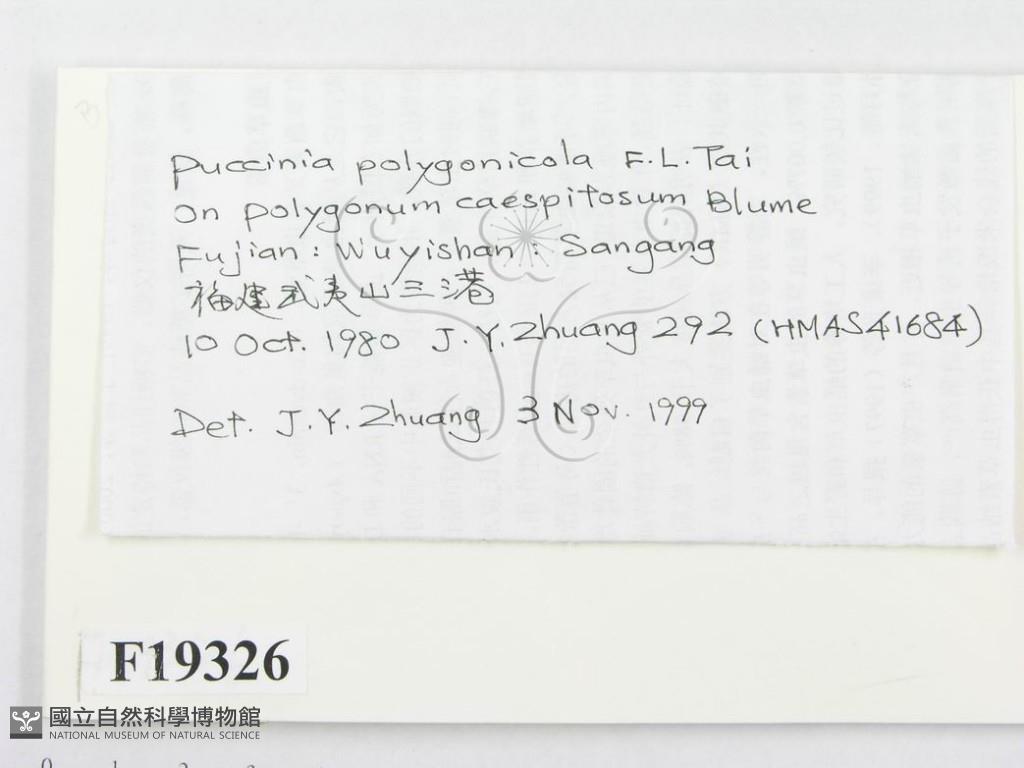 Puccinia polygonicola F.L.Tai
On polygonum caespitosum Blume
Fujian : Wuyishan : Sangang
福建武夷山三港
10 Oct. 1980 J.Y.Zhuang 292 (HMAS41684)
Det. J.Y.Zhuang 3 Nov. 1999
F19326
國立自然科學博物館
NATIONAL MUSEUM OF NATURAL SCIENCE